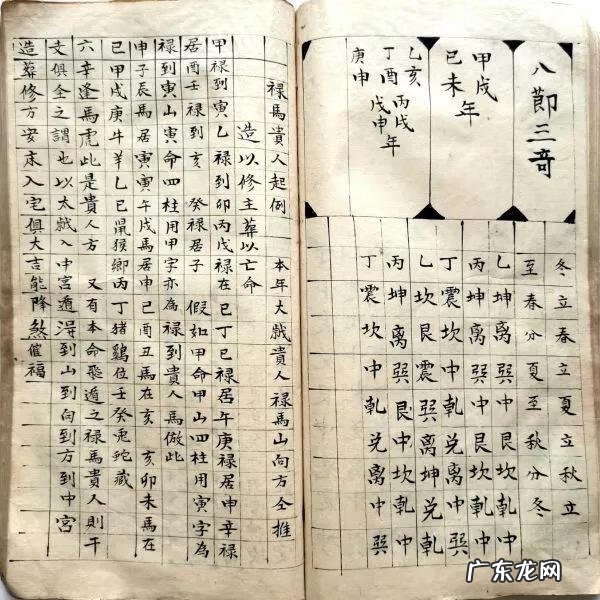 八節三奇
甲戌
己未年
乙亥 丙戌
丁酉 戊申年
庚申
冬立春立夏立秋立
至春分夏至秋分冬
乙坎艮震巽离坤兑乾
丙坤离巽艮中坎乾中
丁震坎中乾兑离中巽
禄馬貴人起例 本年大戝貴人禄馬山向方仝推
造以修主葬以亡命
甲禄到寅乙禄到卯丙戊禄在巳丁己禄居午庚禄居申辛禄
居酉壬禄到亥 癸禄居子 假如甲命甲山四柱用寅字為
禄到東山寅命四柱用甲字亦為禄到貴人馬倣此
申子辰馬居寅寅午戌馬居申巳酉丑馬在亥 亥卯未馬在
巳甲戊庚牛羊乙己鼠猴鄉丙丁猪鷄位壬癸兎蛇藏
六辛逢馬虎此是貴人方 又有本命飛遁之禄馬貴人則干
支俱全之謂也以太戝入中宮遁淂到山到向到方到中宮
造葬修方安床入宅俱大吉能降煞催福
广东龙网